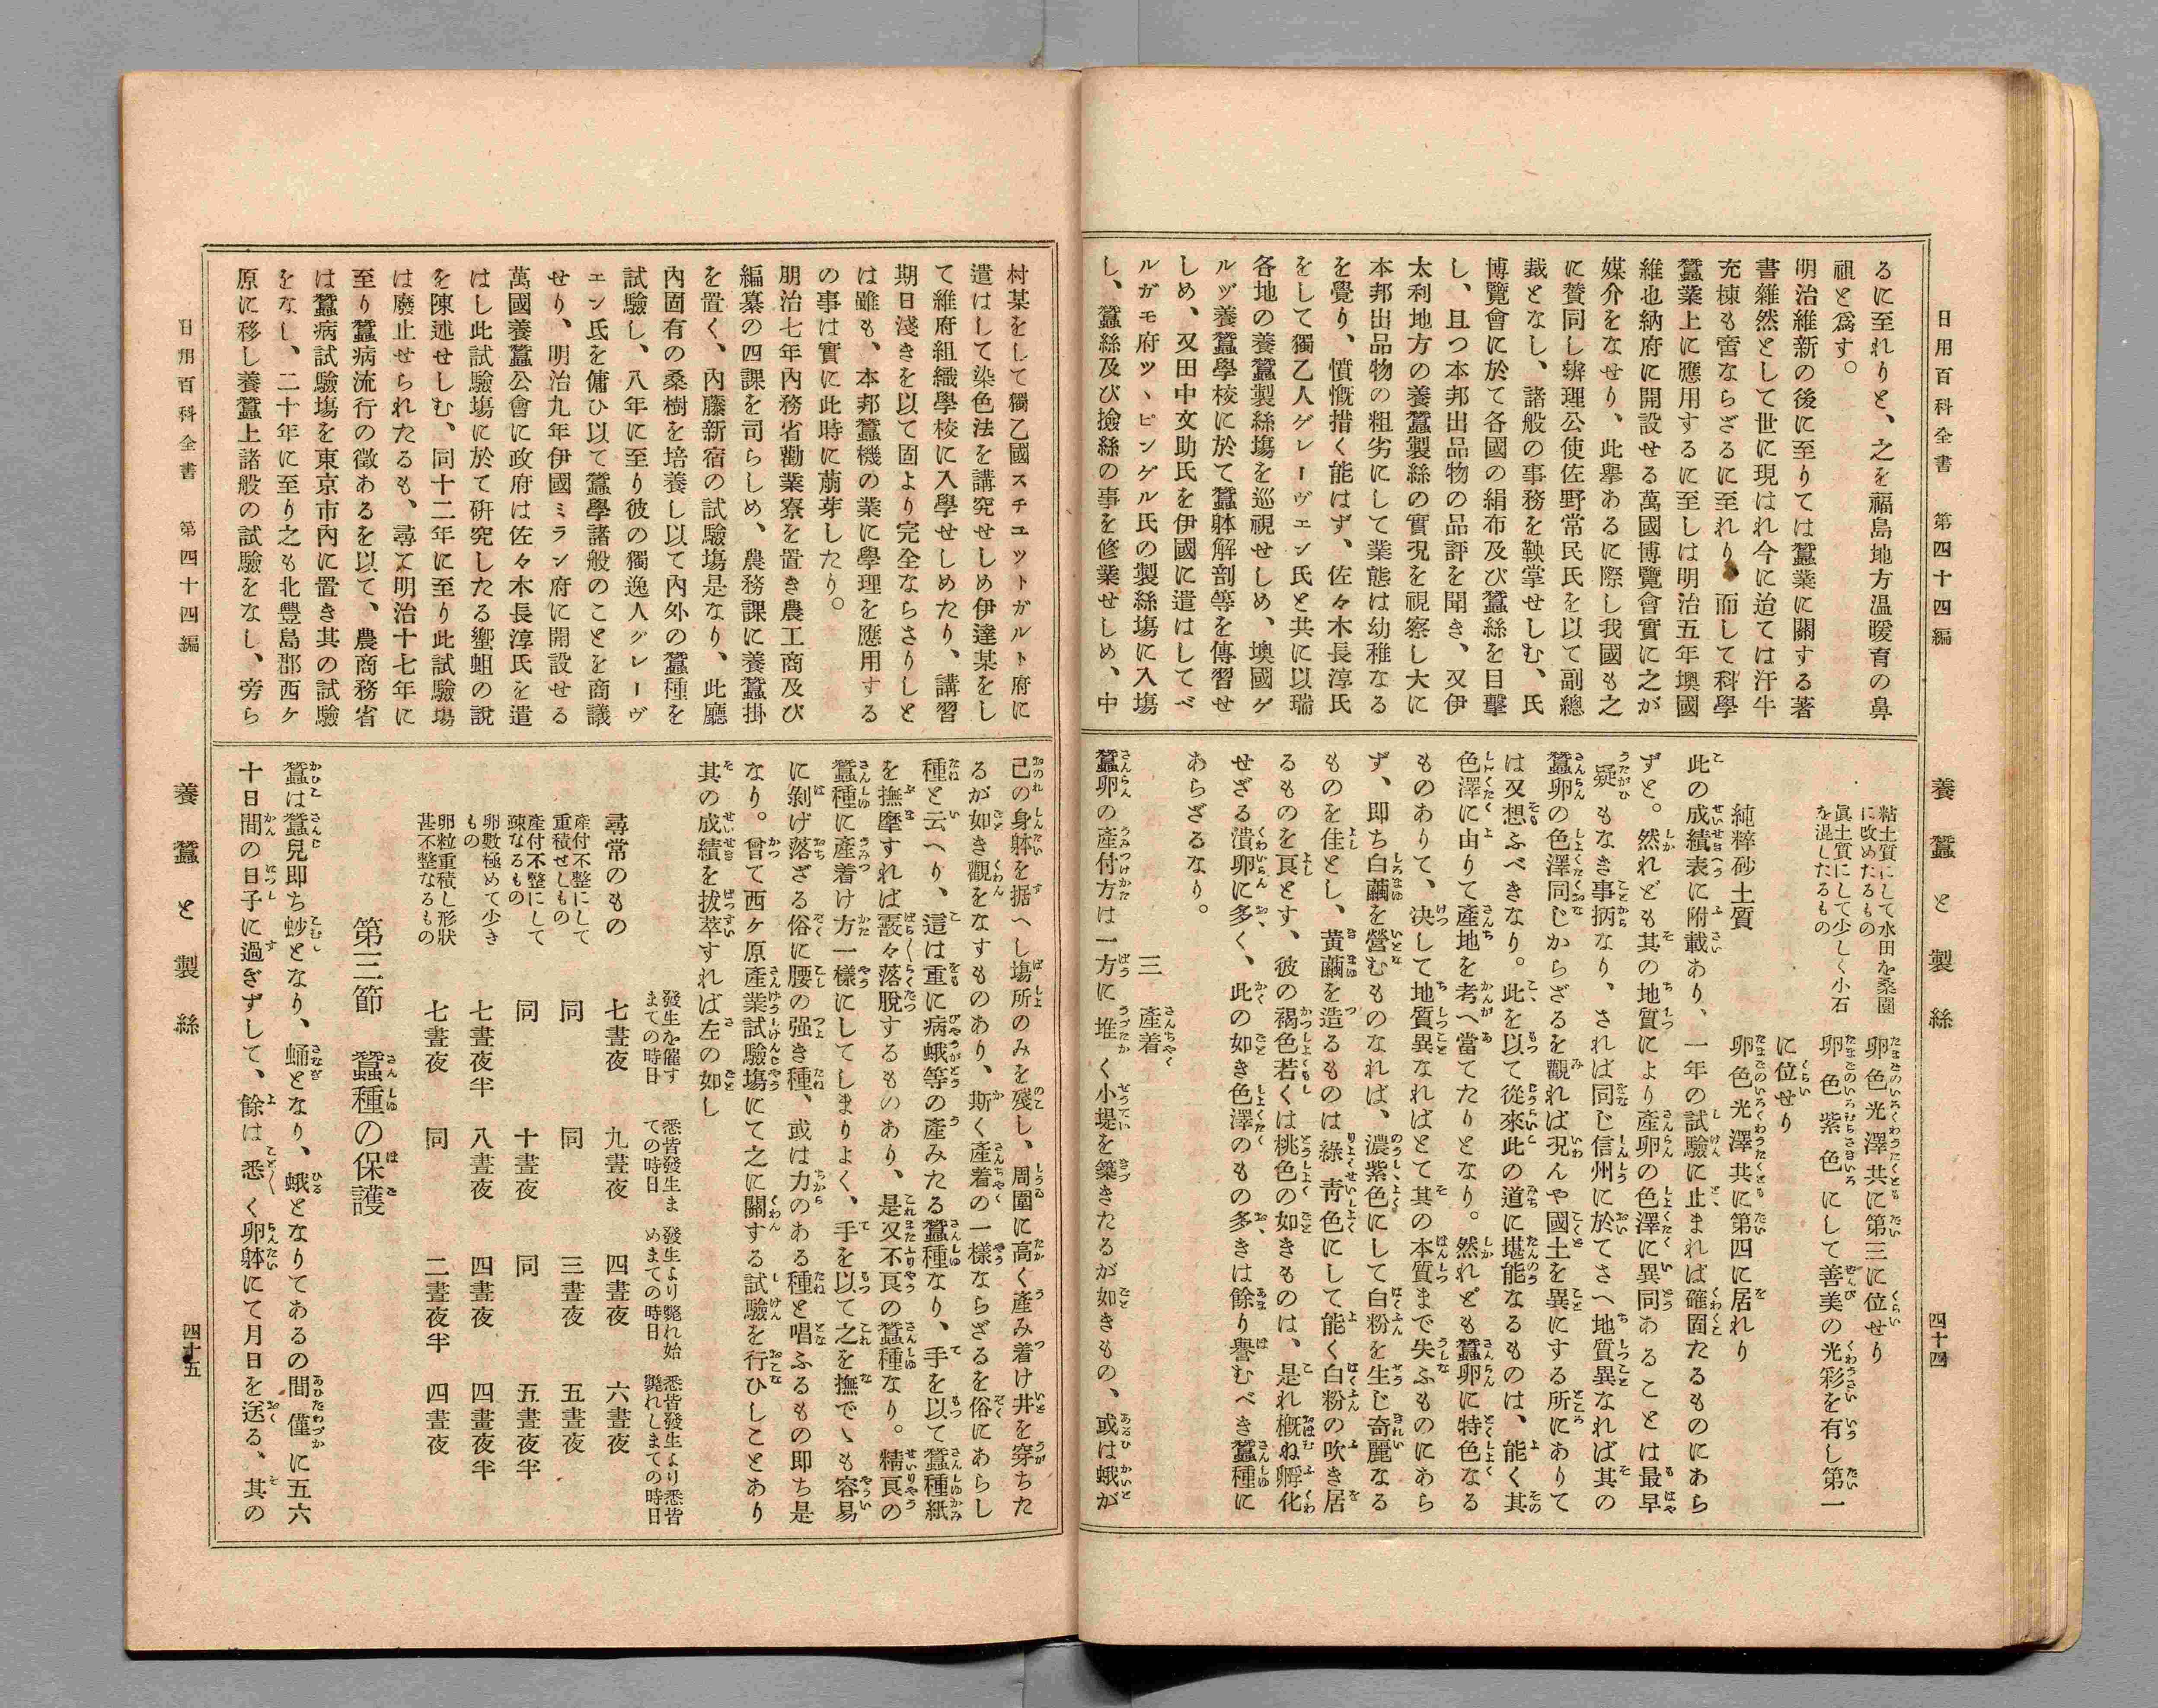 日用百科全書　第四十四編
養蠶と製絲
四十四
るに至れりと、之を福島地方温暖育の鼻
祖と爲す。
明治維新の後に至りては蠶業に關する著
書雜然として世に現はれ今に迨ては汗牛
充棟も啻ならざるに至れり、而して科學
蠶業上に應用するに至しは明治五年墺國
維也納府に開設せる萬國博覽會實に之が
媒介をなせり、此擧あるに際し我國も之
に賛同し辨理公使佐野常民氏を以て副總
裁となし、諸般の事務を鞅掌せしむ、氏
博覽會に於て各國の絹布及び蠶絲を目擊
し、且つ本邦出品物の品評を聞き、又伊
太利地方の養蠶製絲の實況を視察し大に
本邦出品物の粗劣にして業態は幼稚なる
を覺り、憤慨措く能はず、佐々木長淳氏
をして獨乙人グレーヴェン氏と共に以瑞
各地の養蠶製絲塲を巡視せしめ、墺國ゲ
ルヅ養蠶學校に於て蠶躰解剖等を傳習せ
しめ、又田中文助氏を伊國に遣はしてベ
ルガモ府ツヽピンゲル氏の製絲塲に入塲
し、蠶絲及び撿絲の事を修業せしめ、中
粘土質にして水田を桑園
に改めたるもの
眞土質にして少しく小石
を混したるもの
卵色光澤共に第三に位せり
卵色紫色にして善美の光彩を有し第一
に位せり
純粹砂土質
卵色光澤共に第四に居れり
此の成績表に附載あり、一年の試驗に止まれば確固たるものにあら
ずと。然れども其の地質により產卵の色澤に異同あることは最早
疑もなき事柄なり、されば同じ信州に於てさへ地質異なれば其の
蠶卵の色澤同じからざるを觀れば況んや國土を異にする所にありて
は又想ふべきなり。此を以て從來此の道に堪能なるものは、能く其
色澤に由りて產地を考へ當てたりとなり。然れども蠶卵に特色なる
ものありて、決して地質異なればとて其の本質まで失ふものにあら
ず、即ち白繭を營むものなれば、濃紫色にして白粉を生じ奇麗なる
ものを佳とし、黄繭を造るものは綠青色にして能く白粉の吹き居
るものを良とす、彼の褐色若くは桃色の如きものは、是れ概ね孵化
せざる潰卵に多く、此の如き色澤のもの多きは餘り譽むべき蠶種に
あらざるなり。
三　產着
蠶卵の產付方は一方に堆く小堤を築きたるが如きもの、或は蛾が
村某をして獨乙國スチユットガルト府に
遣はして染色法を講究せしめ伊達某をし
て維府組織學校に入學せしめたり、講習
期日淺きを以て固より完全ならさりしと
は雖も、本邦蠶機の業に學理を應用する
の事は實に此時に萠芽したり。
朋治七年內務省勸業寮を置き農工商及び
編纂の四課を司らしめ、農務課に養蠶掛
を置く、內藤新宿の試驗塲是なり、此廳
內固有の桑樹を培養し以て內外の蠶種を
試驗し、八年に至り彼の獨逸人グレーヴ
エン氏を傭ひ以て蠶學諸般のことを商議
せり、明治九年伊國ミラン府に開設せる
萬國養蠶公會に政府は佐々木長淳氏を遣
はし此試驗塲に於て硏究したる蠁蛆の說
を陳述せしむ、同十二年に至り此試驗塲
は廢止せられたるも、尋て明治十七年に
至り蠶病流行の徵あるを以て、農商務省
は蠶病試驗塲を東京市內に置き其の試驗
をなし、二十年に至り之も北豐島郡西ヶ
原に移し養蠶上諸般の試驗をなし、旁ら
己の身躰を据へし塲所のみを殘し、周圍に高く產み着け井を穿ちた
るが如き觀をなすものあり、斯く產着の一樣ならざるを俗にあらし
種と云へり、這は重に病蛾等の產みたる蠶種なり、手を以て蠶種紙
を撫摩すれば霰々落脫するものあり、是又不良の蠶種なり。精良の
蠶種に產着け方一樣にしてしまりよく、手を以て之を撫でゝも容易
に剝げ落ざる俗に腰の强き種、或は力のある種と唱ふるもの即ち是
なり。曾て西ヶ原產業試驗塲にて之に關する試驗を行ひしことあり
其の成績を拔萃すれば左の如し
發生を催す
まての時日
悉皆發生ま
ての時日
發生より斃れ始
めまての時日
悉皆發生より悉皆
斃れしまての時日
尋常のもの　七晝夜　九晝夜　四晝夜　六晝夜
產付不整にして
重積せしもの　同　同　三晝夜　五晝夜
產付不整にして
疎なるもの　同　十晝夜　同　五晝夜半
卵數極めて少き
もの　七晝夜半　八晝夜　四晝夜　四晝夜半
卵粒重積し形狀
甚不整なるもの　七晝夜　同　二晝夜半　四晝夜
第三節　蠶種の保護
蠶は蠶兒即ち𧉫となり、蛹となり、蛾となりてあるの間僅に五六
十日間の日子に過ぎずして、餘は悉く卵躰にて月日を送る、其の
日用百科全書　第四十四編
養蠶と製絲
四十五